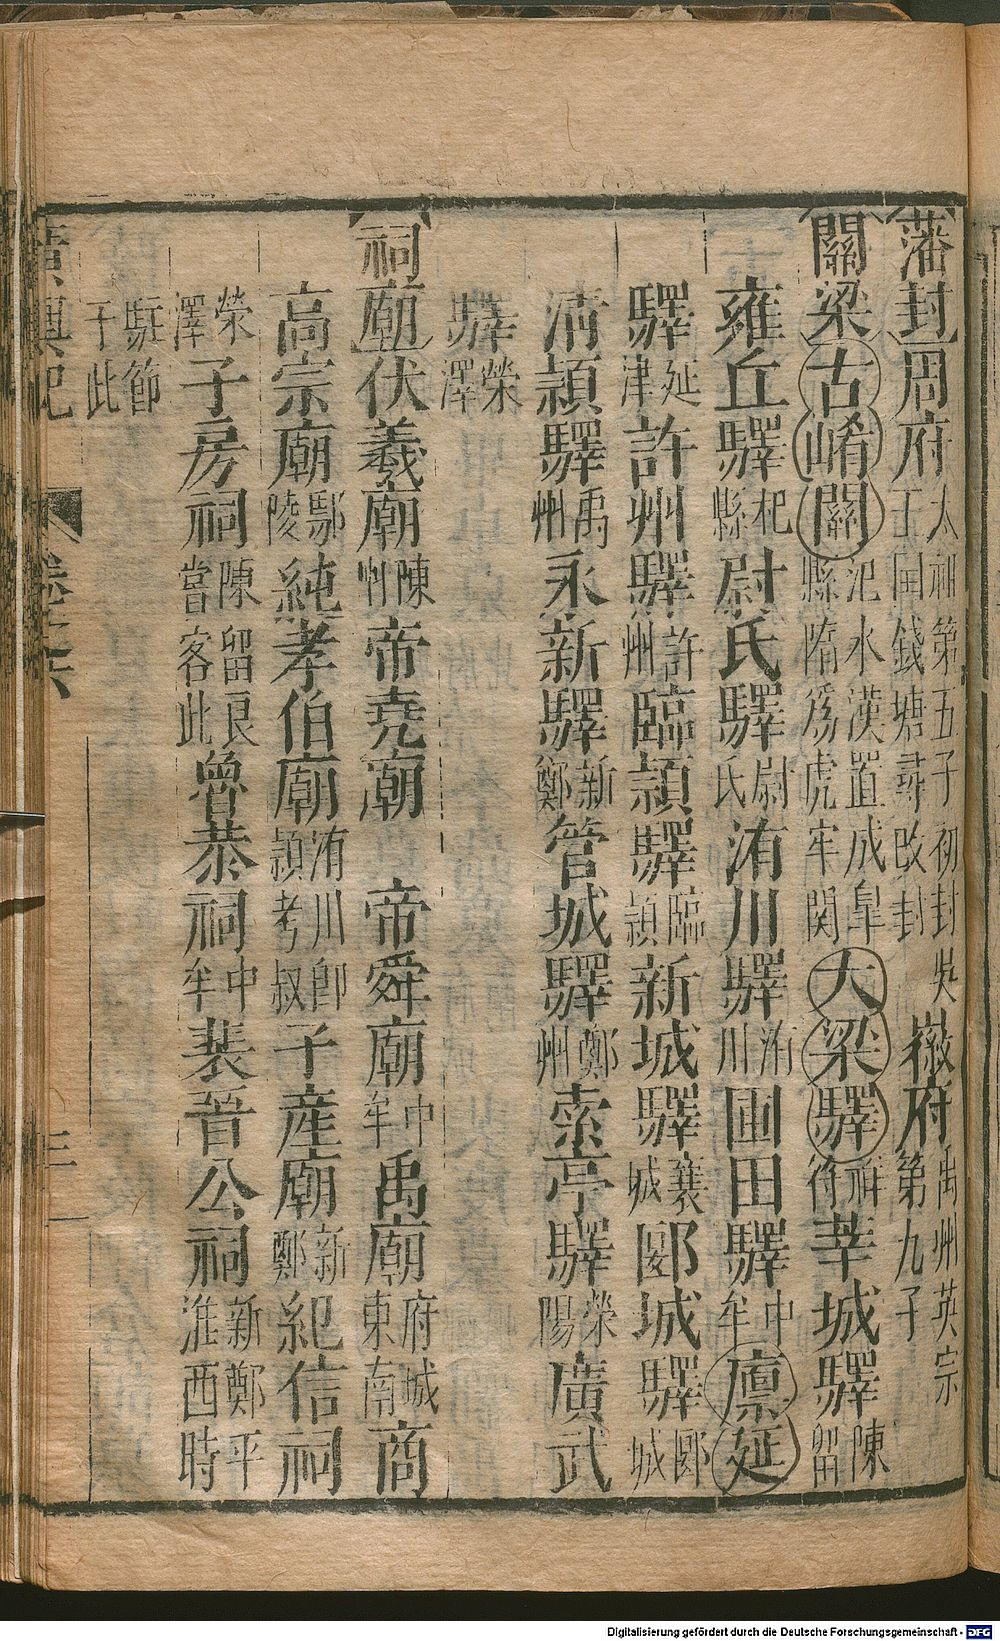 【藩封】周府太祖第五子初封吳王国錢塘尋改封徽府禹州英宗第九子
【關梁】古崤關汜水漢置成皐縣隋爲虎牢関大梁驛祥符莘城驛陳留
雍丘驛杞縣尉氏驛尉氏洧川驛洧川圃田驛中牟廩延
驛延津許州驛許州臨潁驛臨潁新城驛襄城郾城驛郾城
清潁驛禹州永新驛新鄭管城驛鄭州索亭驛榮陽廣武
驛榮澤
【祠廟】伏羲廟陳州帝堯廟 帝舜廟中牟禹廟府城東南商
高宗廟鄢陵純孝伯廟洧川即潁考叔子産廟新鄭紀信祠
榮澤子房祠陳留良嘗客此魯恭祠中牟裴晉公祠新鄭平淮西時
駐節于此
廣輿記 卷之六 三一
Digitalisierung gefördert durch die Deutsche Forschungsgemeinschaft - DFG